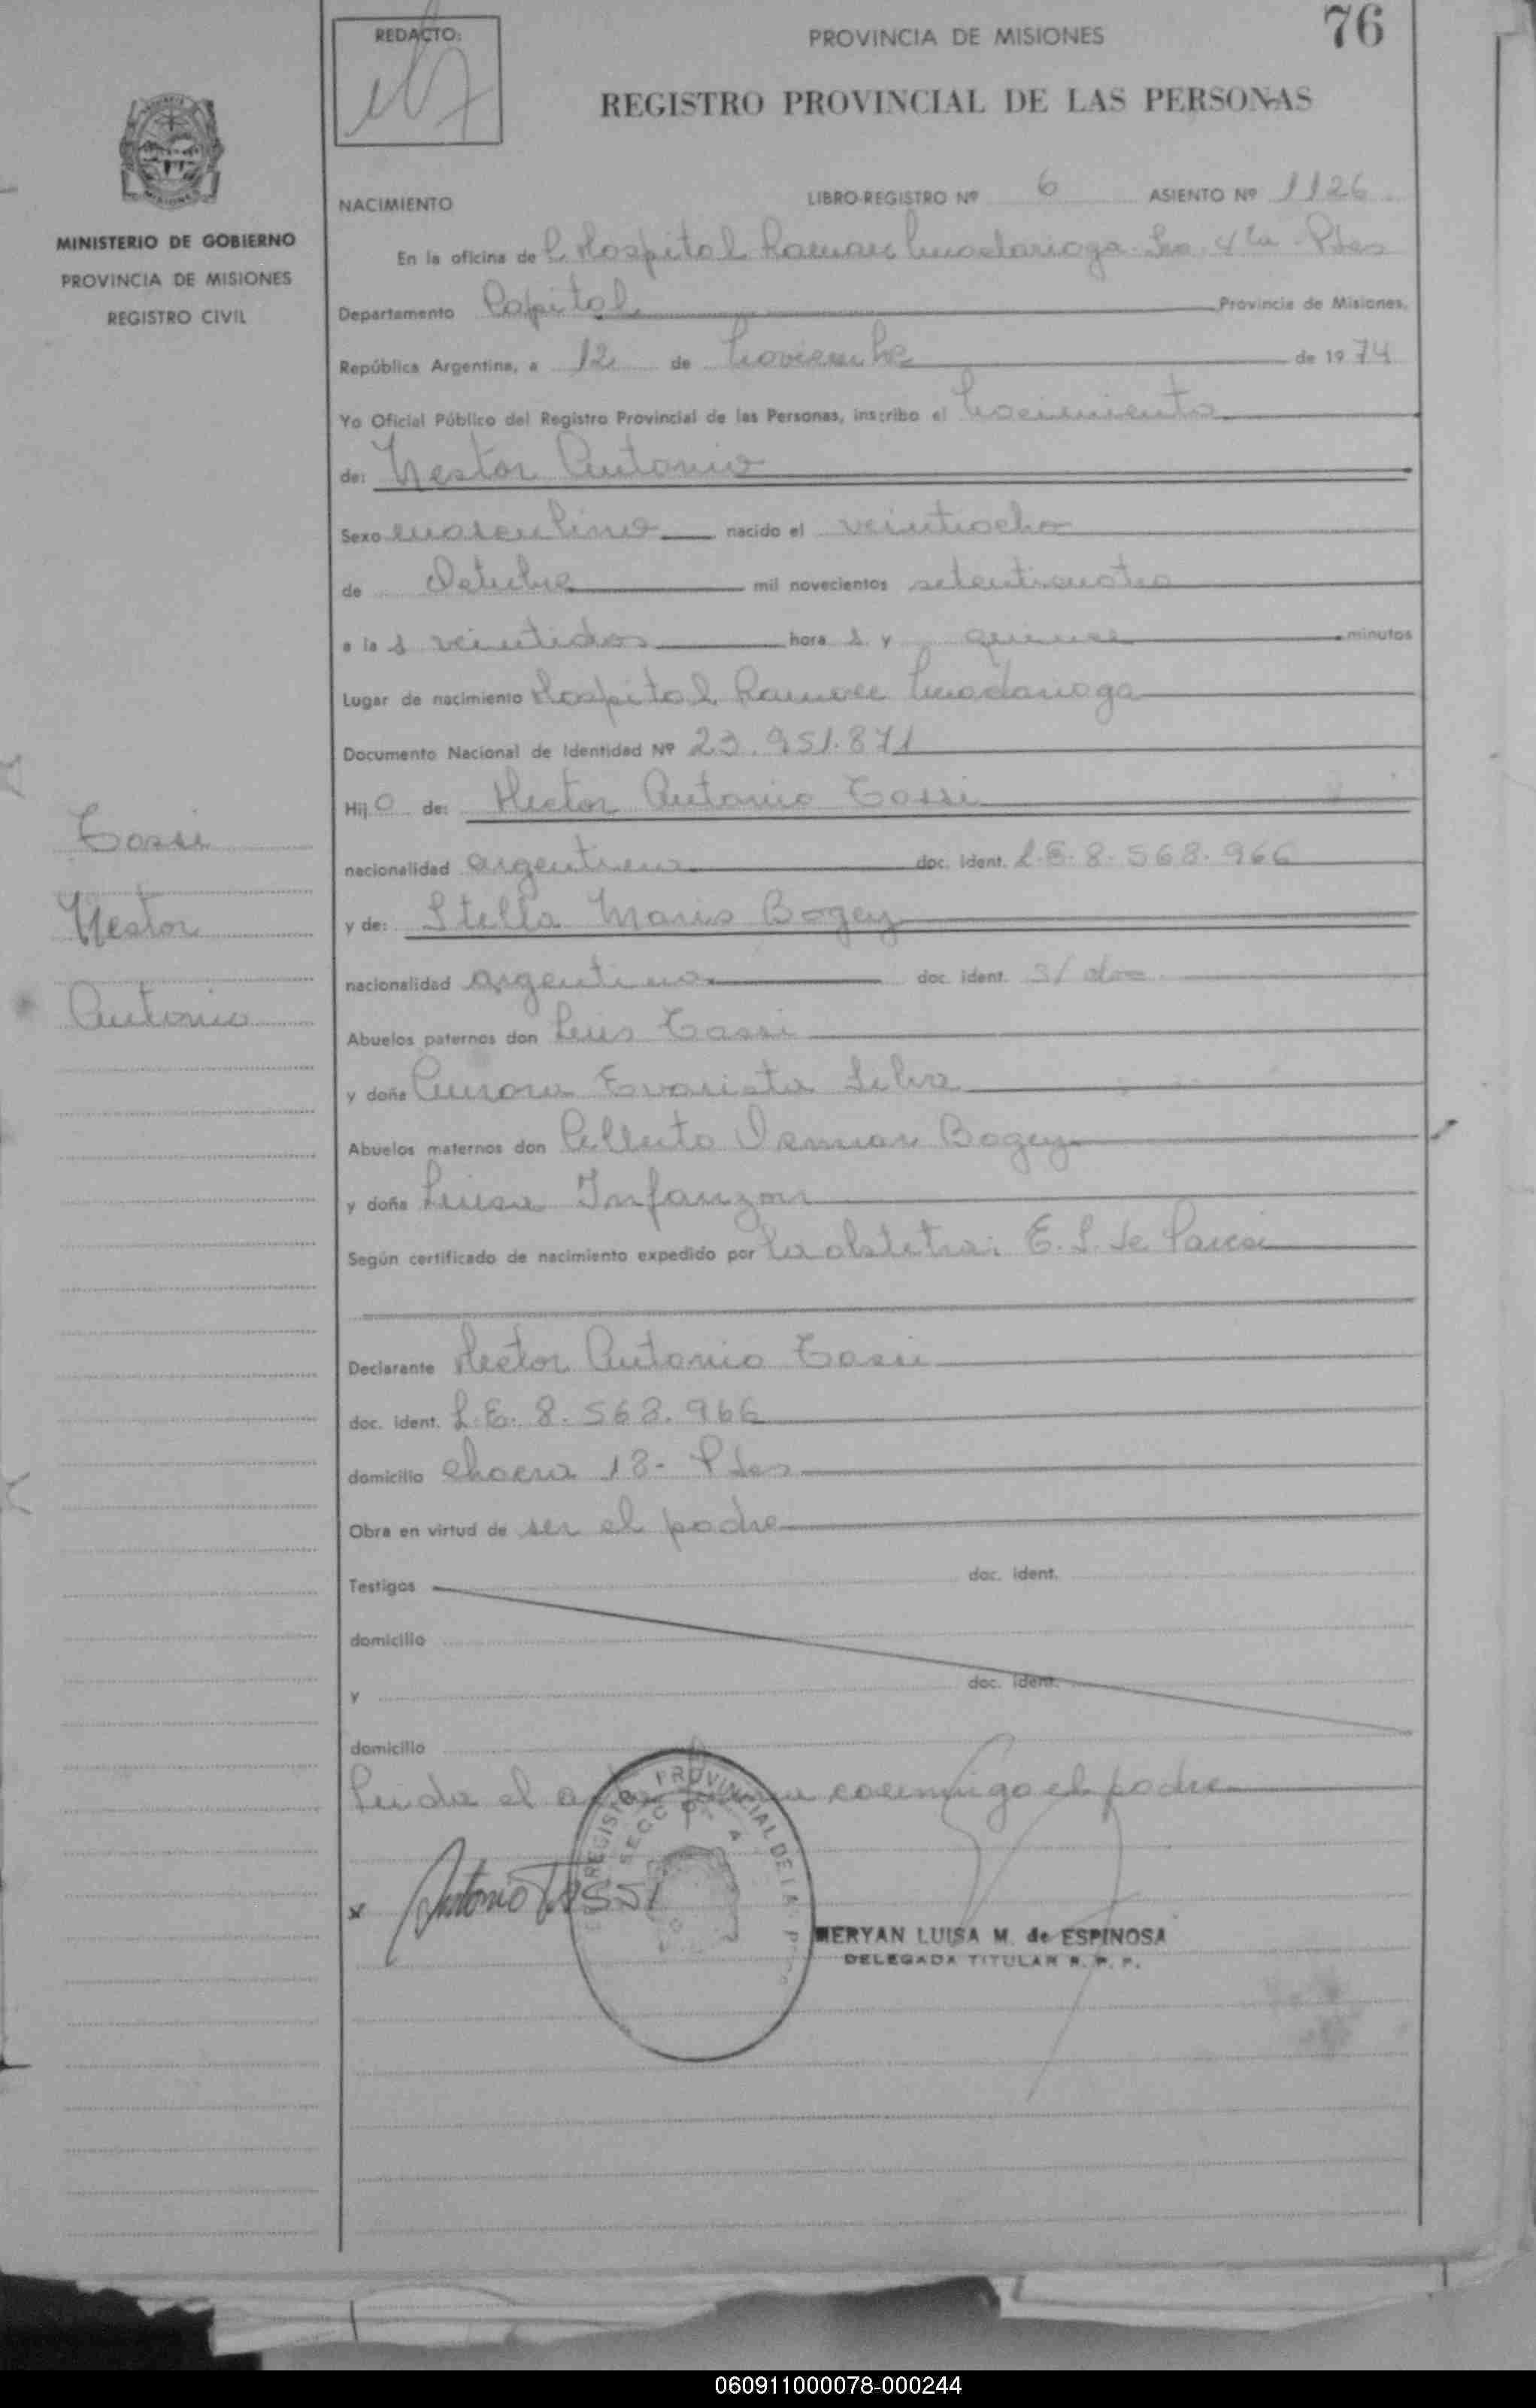 REDACTO:
PROVINCIA DE MISIONES
76
REGISTRO PROVINCIAL DE LAS PERSONAS
MINISTERIO DE GOBIERNO
PROVINCIA DE MISIONES
REGISTRO CIVIL
NACIMIENTO LIBRO-REGISTRO Nº 6 ASIENTO Nº 1126
En la oficina de Hospital Ramon Madariaga 4ta Pdas
Departamento Capital Provincia de Misiones,
República Argentina, a 12 de Noviembre de 1974
Yo Oficial Público del Registro Provincial de las Personas, inscribo el Nacimiento
de: Nestor Antonio
Sexo masculino nacido el veintiocho
de Octubre mil novecientos setenticuatro
a las veintidos horas y quince minutos
Lugar de nacimiento Hospital Ramon Madariaga
Documento Nacional de Identidad Nº 23.951.871
Hijo de: Hector Antonio Tassi
nacionalidad argentina doc. ident. L.E. 8.568.966
y de: Stella Maris Bogey
nacionalidad argentina doc. ident. s/ doc.
Abuelos paternos don Luis Tassi
y doña Aurora Evarista Silva
Abuelos maternos don Alberto Bogey
y doña Luisa Infanzon
Según certificado de nacimiento expedido por la obstetra: E. S. de
Declarante Hector Antonio Tassi
doc. ident. L.E. 8.568.966
domicilio chacra 18- Pdas
Obra en virtud de ser el padre
Testigos doc. ident.
domicilio
y doc. ident.
domicilio
Leida el acta firma conmigo el padre
Tassi
Nestor
Antonio
REGISTRO PROVINCIAL DE LAS
SECC 4
x Antonio TASSI
MERYAN LUISA M. de ESPINOSA
DELEGADA TITULAR R. P. P.
060911000078-000244